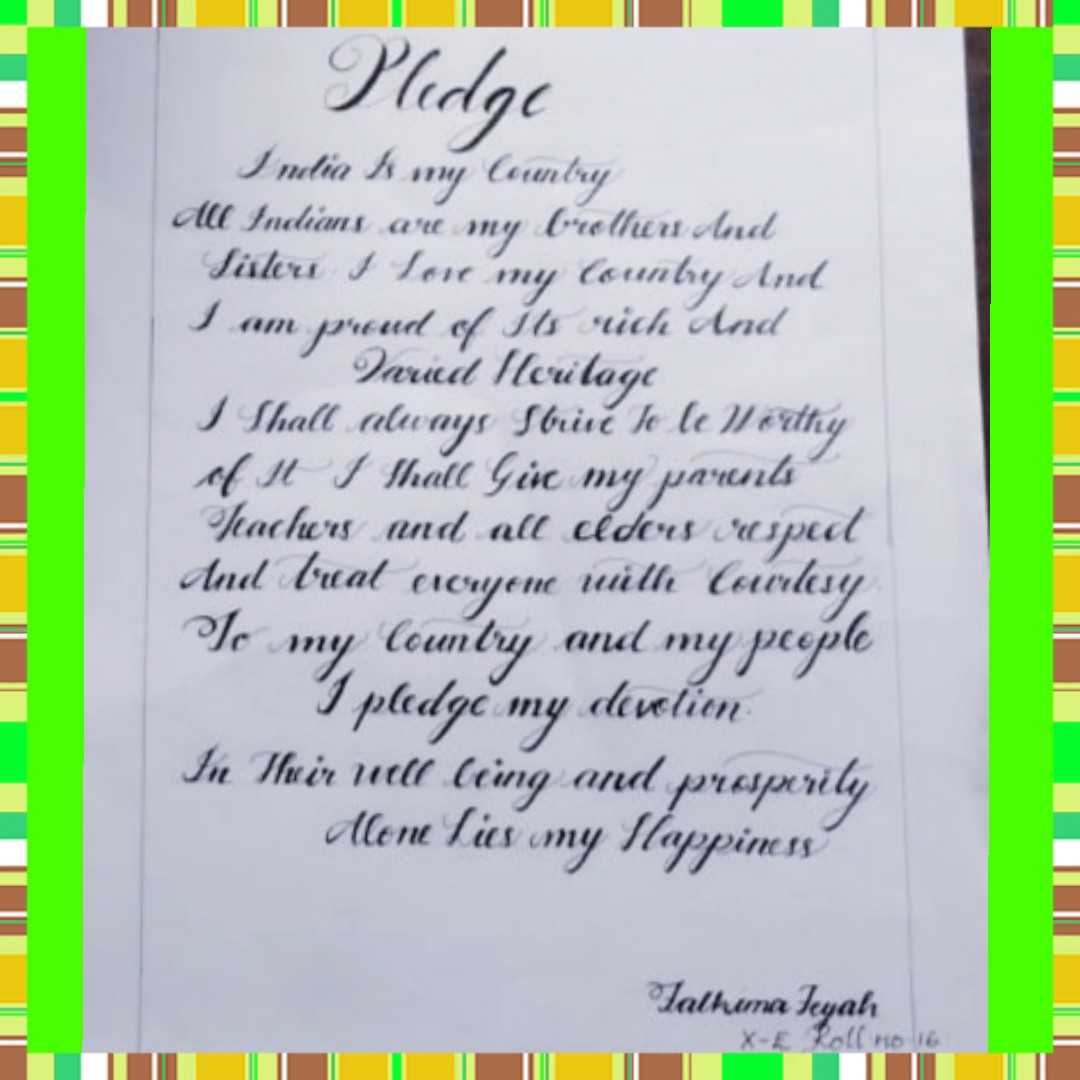 Pledge
India Is my Country
All Indians are my brothers And
Sisters I Love my Country And
I am proud of Its rich And
Varied Heritage
I Shall always Strive To be Worthy
of It I Shall Give my parents
Teachers and all elders respect
And treat everyone with Courtesy
To my Country and my people
I pledge my devotion.
In Their well being and prosperity
Alone Lies my Happiness
Fathima Feyah
X-E Roll no 16